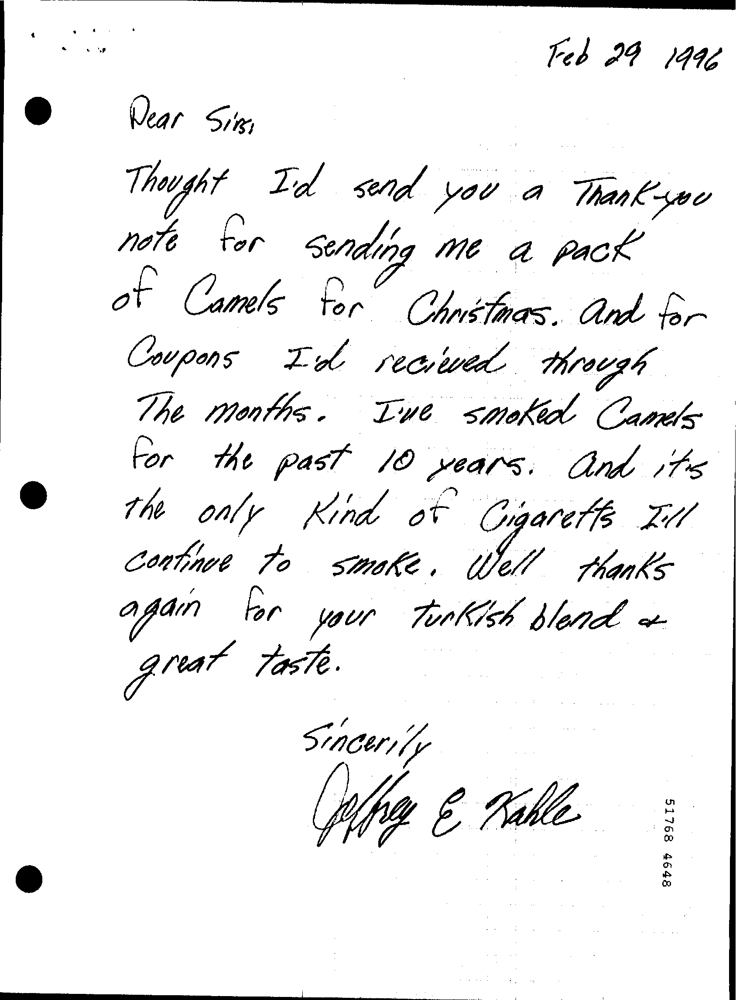 Feb 29 1996
Dear Sirs,
Thought I'd send you a Thank-you
note for sending me a pack
of Camels for Christmas. And for
Coupons I'd recieved through
The months. I've smoked Camels
for the past 10 years. And it's
the only Kind of Cigaretts I'll
continue to smoke. Well thanks
again for your turkish blend &
great taste.
Sincerily
Jeffrey E Kahle
51768 4648